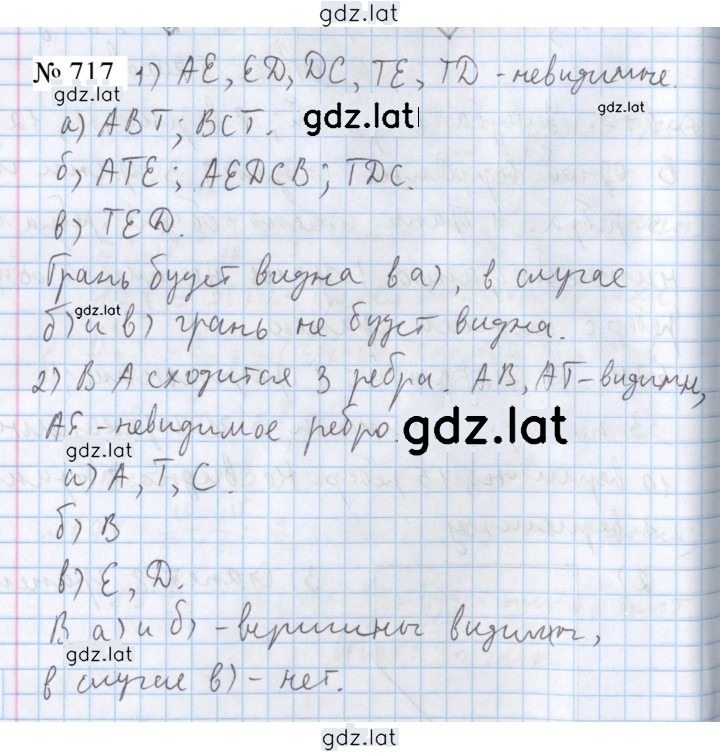 gdz.lat
№ 717 1) AE, ED, DC, TE, TD - невидимые.
gdz.lat
gdz.lat
а) ABT; BCT.
gdz.lat
б) ATE; AEDCB; TDC.
в) TED.
Грань будет видна в а), в случае
gdz.lat
б) и в) грань не будет видна.
2) В A сходится 3 ребра. AB, AT - видимы,
AE - невидимое ребро.
gdz.lat
gdz.lat
а) A, T, C.
б) B
в) E, D.
В а) и б) - вершины видимы,
gdz.lat
в случае в) - нет.
gdz.lat